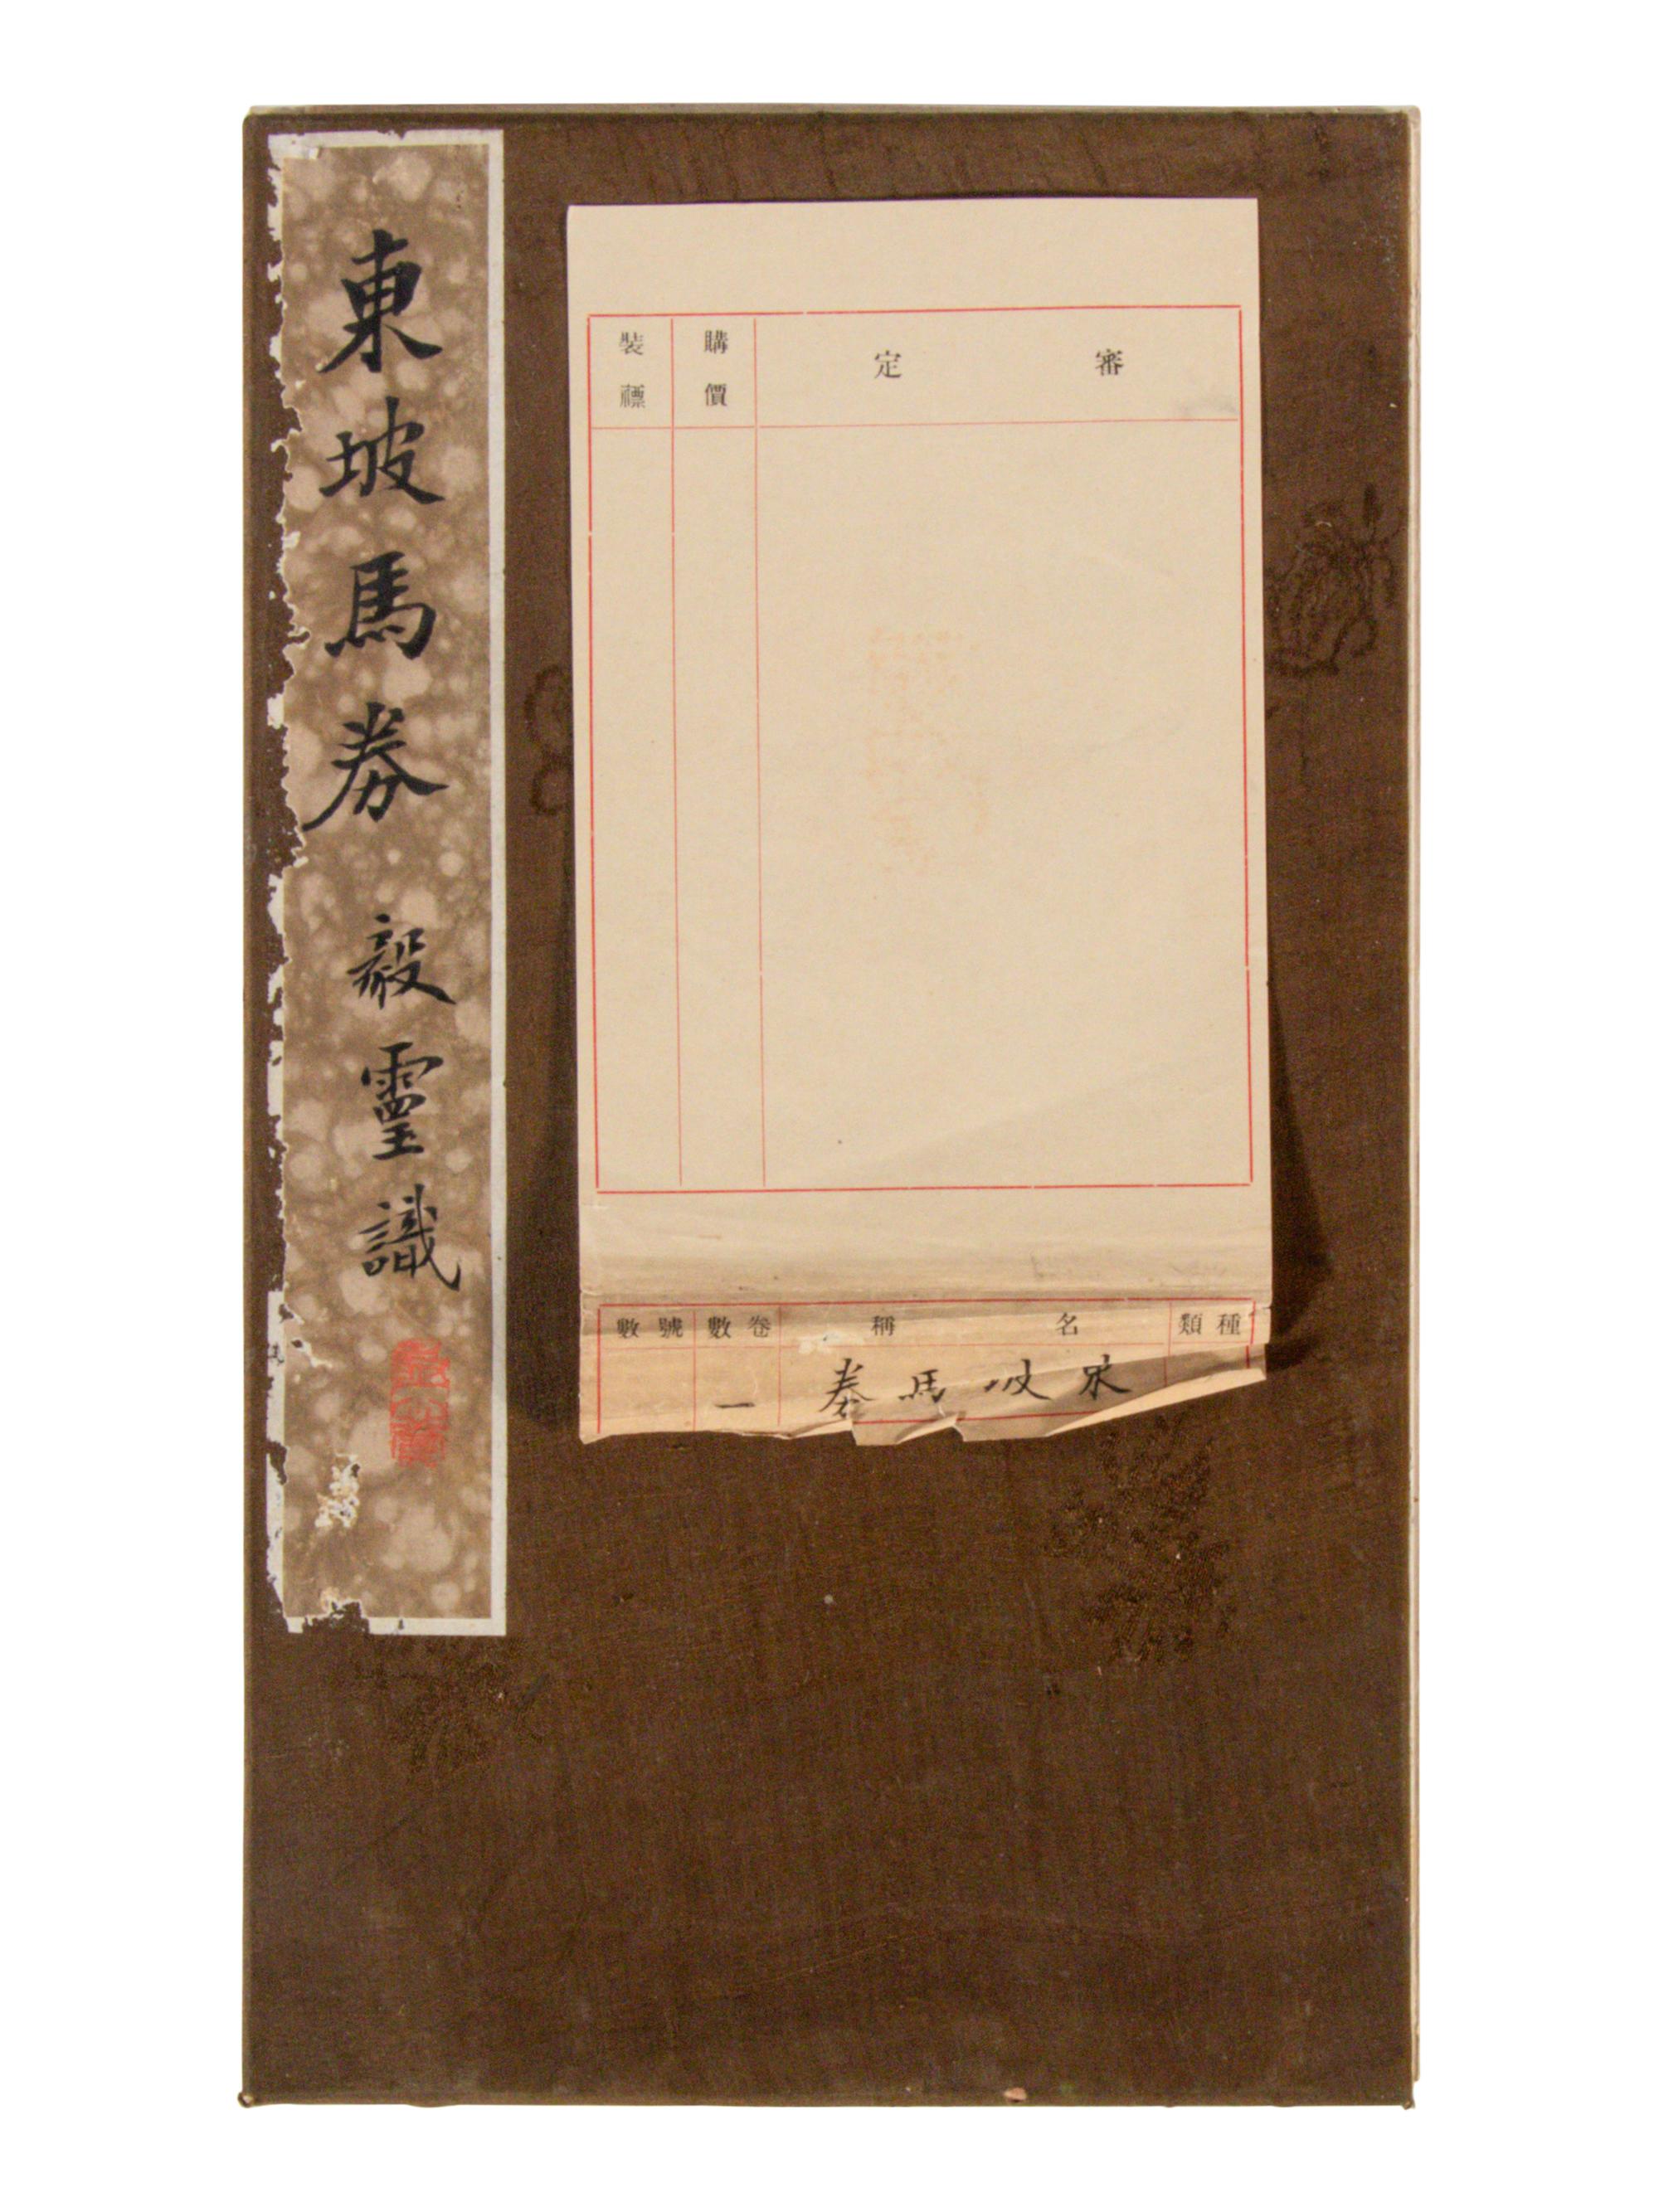 東坡馬券
毅靈識
審定
購價
裝褾
種類
名稱
卷數
號數
坡馬
一